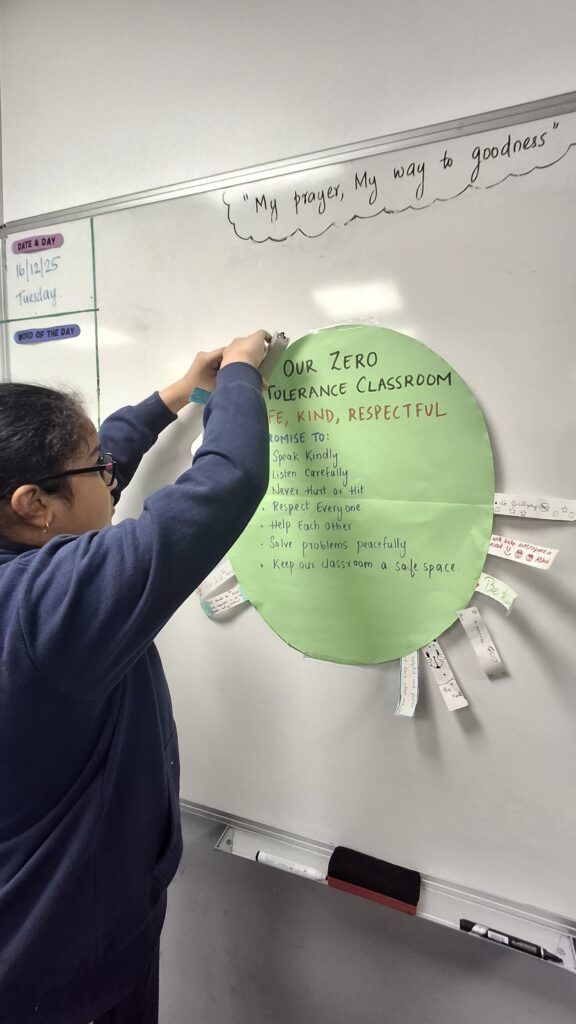 "My prayer, My way to goodness"
DATE & DAY
16/12/25
Tuesday
WORD OF THE DAY
OUR ZERO
TOLERANCE CLASSROOM
FE, KIND, RESPECTFUL
OMISE TO:
Speak Kindly
Listen Carefully
Never Hurt or Hit
• Respect Everyone
• Help Each Other
• Solve problems peacefully
• Keep our classroom a safe space.
No Bullying
help everyone in
need
Be
Be